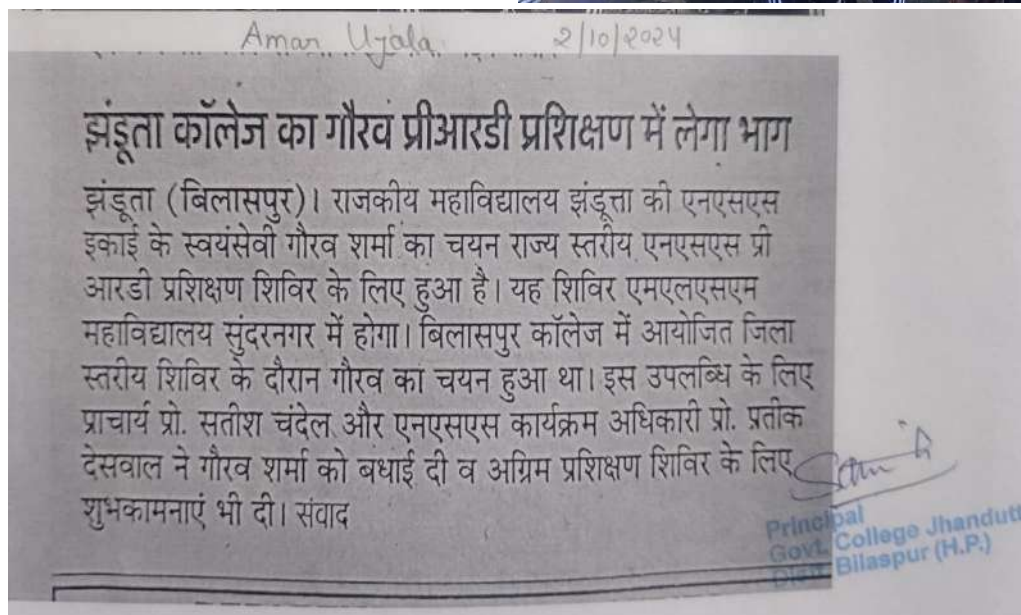 Amar Ujala 2/10/2024
झंडूता कॉलेज का गौरव प्रीआरडी प्रशिक्षण में लेगा भाग
झंडूता (बिलासपुर)। राजकीय महाविद्यालय झंडूत्ता की एनएसएस
इकाई के स्वयंसेवी गौरव शर्मा का चयन राज्य स्तरीय एनएसएस प्री
आरडी प्रशिक्षण शिविर के लिए हुआ है। यह शिविर एमएलएसएम
महाविद्यालय सुंदरनगर में होगा। बिलासपुर कॉलेज में आयोजित जिला
स्तरीय शिविर के दौरान गौरव का चयन हुआ था। इस उपलब्धि के लिए
प्राचार्य प्रो. सतीश चंदेल और एनएसएस कार्यक्रम अधिकारी प्रो. प्रतीक
देसवाल ने गौरव शर्मा को बधाई दी व अग्रिम प्रशिक्षण शिविर के लिए
शुभकामनाएं भी दी। संवाद
Principal
Govt. College Jhandutt
Distt. Bilaspur (H.P.)